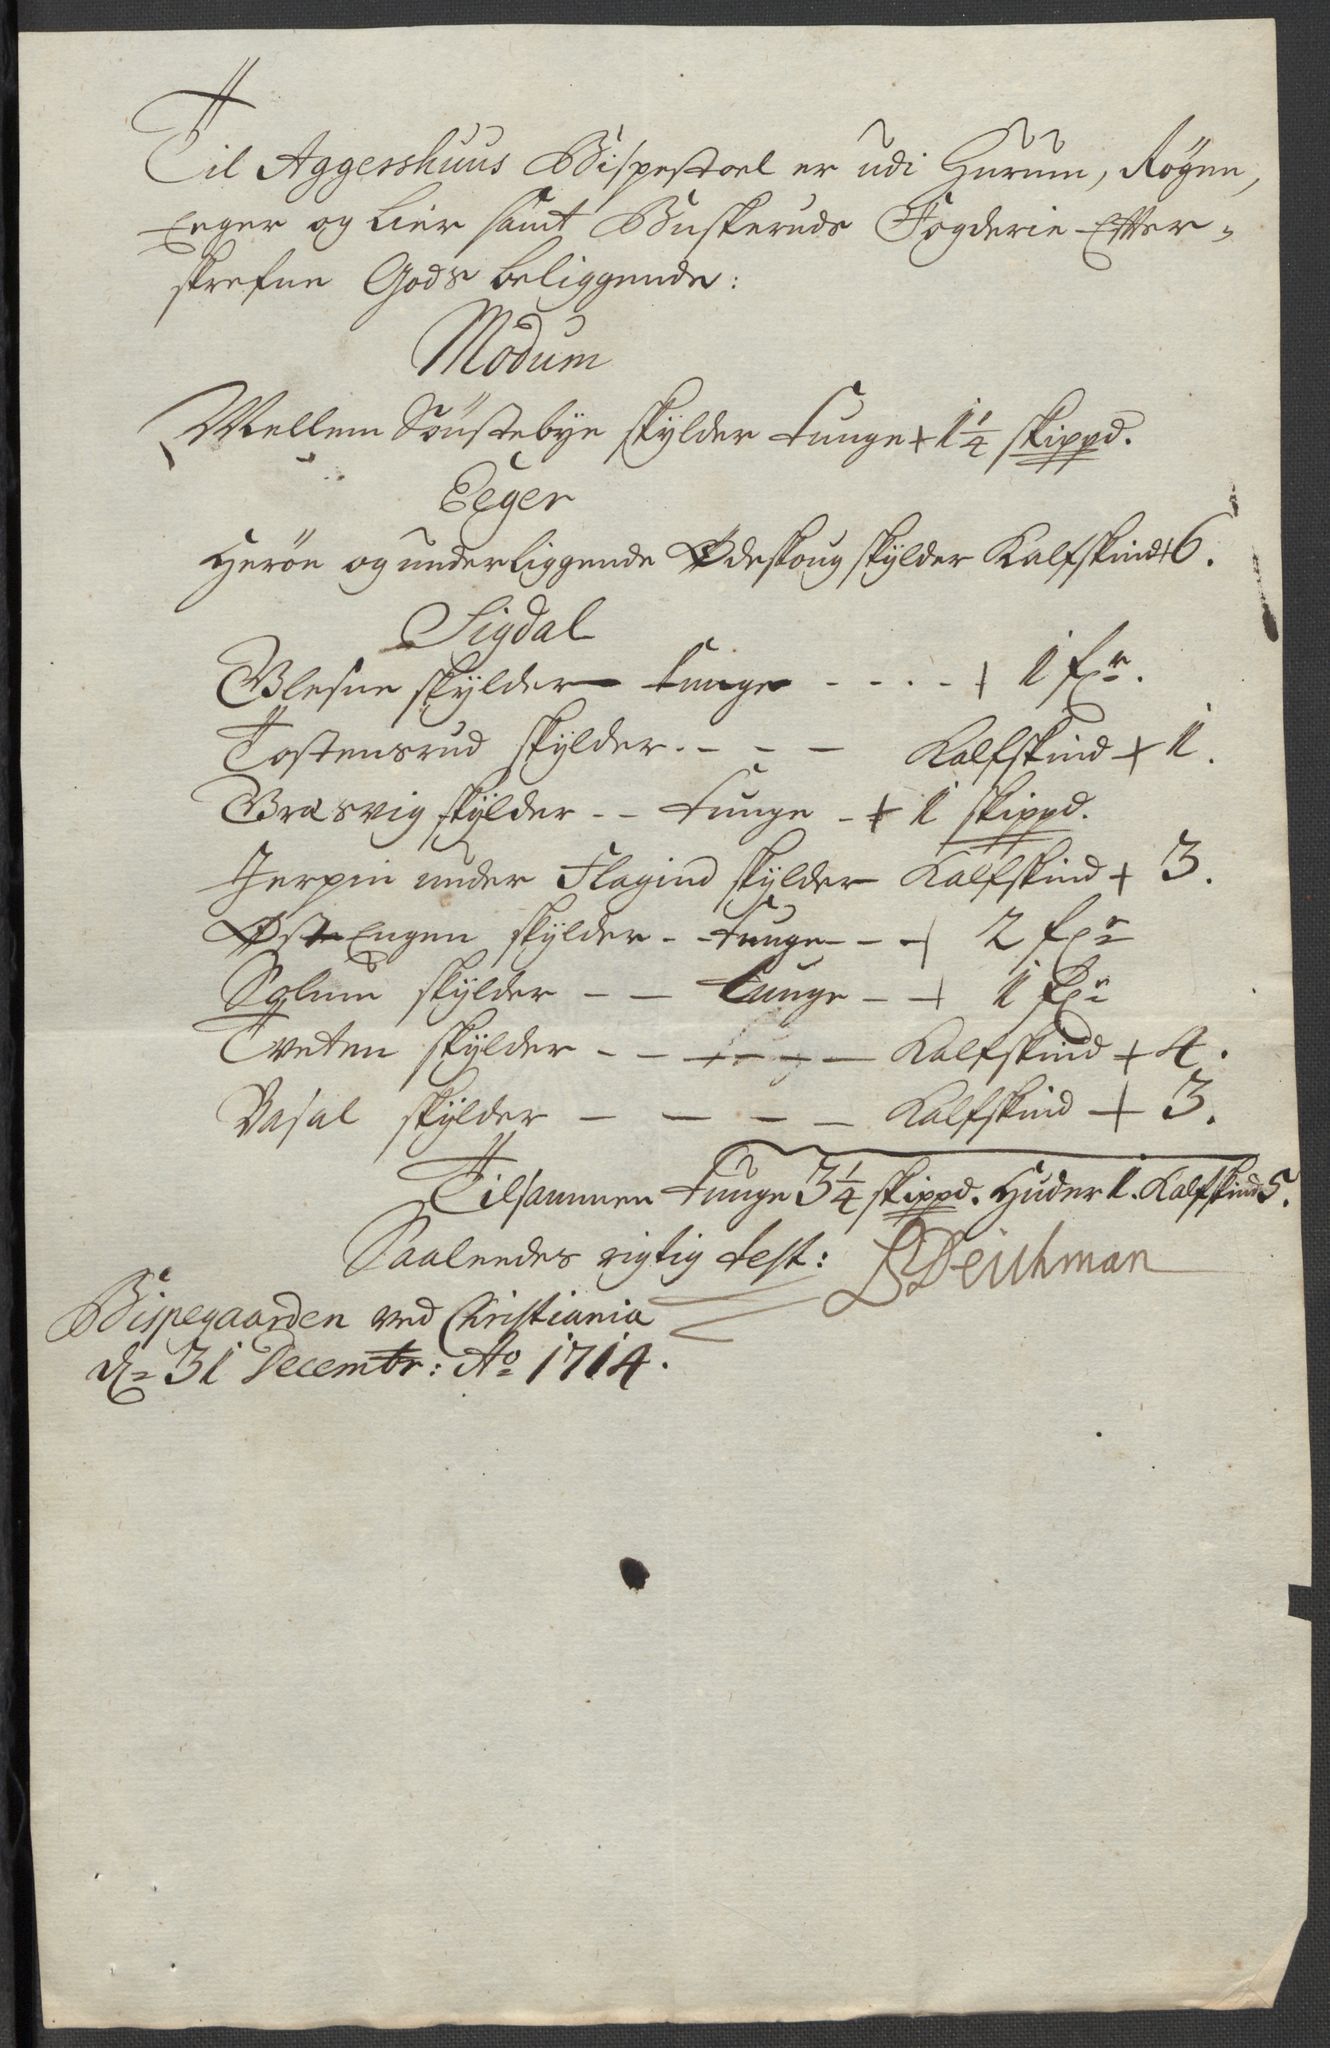 Til Aggershuus Bispestoel er udi Hurum, Røgen,
Eeger og Lier samt Buskeruds Fogderie Effter-
skrefne Gods beliggende:
Modum
Mellem Sönstebye skylder tunge + 1 1/4 skippd.
Eeger
Herön og underliggende Ødeskoug skylder Kalfskind + 6.
Sigdal
Blesne skylder tunge - - - - + 1 fr.
Tostensrud skylder - - - Kalfskind + 1.
Bræsvig skylder - - tunge - + 1 skippd.
Jerpin under Flagind skylder Kalfskind + 3.
Øst Engen skylder - tunge - - + 2 fr
Solum skylder - - tunge - + 1 fr
Tveten skylder - - - - - Kalfskind + 4.
Vasal skylder - - - - Kalfskind + 3.
Tilsammen tunge 3 1/4 skippd. Huder 1. Kalfskind 5.
Saaleedes rigtig test: Deichman
Bispegaarden ved Christiania
dn 31 Decembr: Ao 1714.